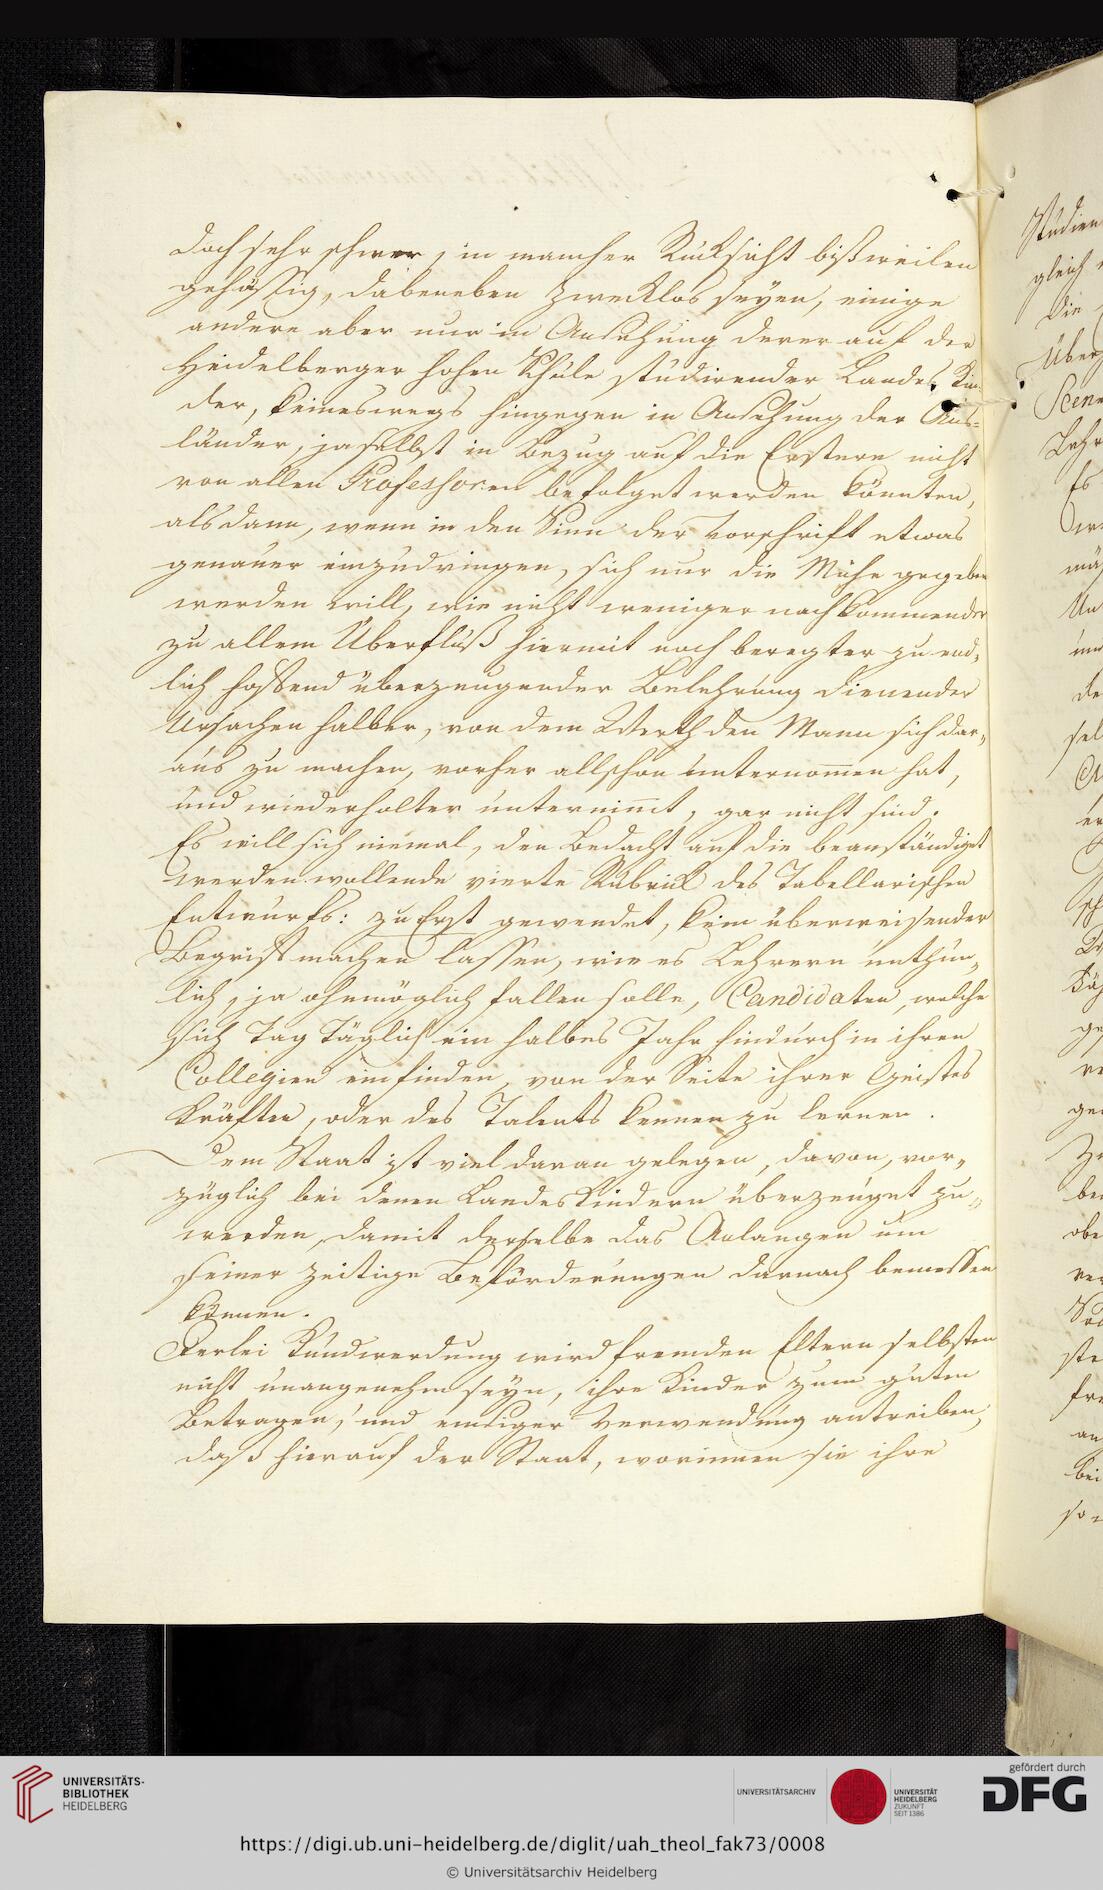 doch sehr schwer, in mancher Rücksicht bißweilen
gehässig, dabeneben zwecklos seyen, einige
andere aber nur in Ansehung derer auf der
Heidelberger hohen Schule studirender Landes Kin-
der, keineswegs hingegen in Ansehung der Aus-
länder, ja selbst in Bezug auf die Erstere nicht
von allen Professoren befolget werden könnten,
alsdann, wenn in den Sinn der Vorschrift etwas
genauer einzudringen, sich nur die Mühe gegeben
werden will, wie nicht weniger nachkommender
zu allem Überfluß hiermit noch beregter zu end-
lich hoffend überzeugender Belehrung dienender
Ursachen halber, von dem Werth den Mann sich dar-
aus zu machen, vorher allschon unternom̄en hat,
und wiederholter unternim̄t, gar nicht sind.
Es will sich niemal, den Bedacht auf die beanständiget
werden wollende vierte Rubrick des Tabellarischen
Entwurfs: zu Erst gewendet, kein überweisender
Begriff machen lassen, wie es Lehrern unthun-
lich, ja ohnmöglich fallen solle, Candidaten, welche
sich Tag Täglich ein halbes Jahr hindurch in ihren
Collegien einfinden, von der Seite ihrer Geistes
Kräften, oder des Talents kennen zu lernen.
Dem Staat ist viel daran gelegen, davon, vor-
züglich bei denen Landeskindern überzeuget zu
werden, damit derselbe das Anlangen um
seiner zeitige Beförderungen darnach bemessen
können.
Derlei Kundwerdung wird fremden Eltern selbsten
nicht unangenehm seyn, ihre Kinder zum guten
Betragen, und emsiger Verwendung antreiben,
daß hierauf der Staat, worinnen sie ihre
Studien
gleich
die
Über
Scene
Lehr
Es
UNIVERSITÄTS-
BIBLIOTHEK
HEIDELBERG
UNIVERSITÄTSARCHIV
UNIVERSITÄT
HEIDELBERG
ZUKUNFT
SEIT 1386
gefördert durch
DFG
https://digi.ub.uni-heidelberg.de/diglit/uah_theol_fak73/0008
© Universitätsarchiv Heidelberg